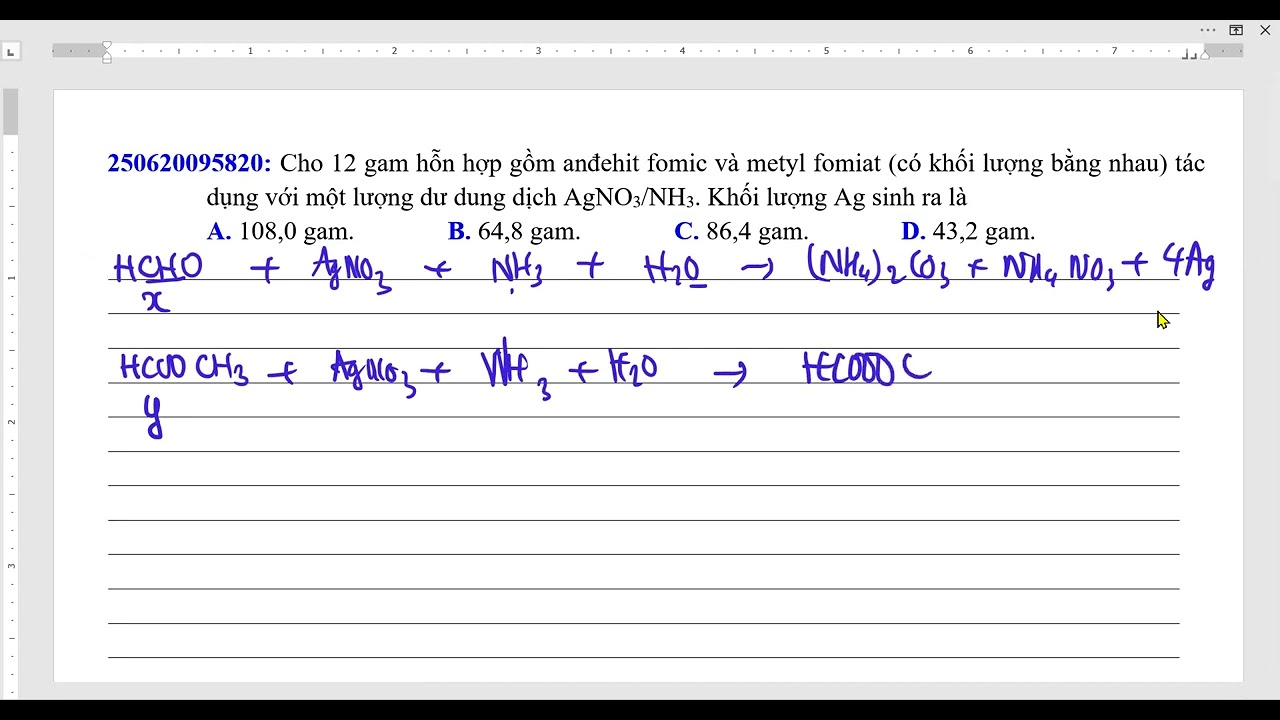 1 2 3 4 5 6 7
250620095820: Cho 12 gam hỗn hợp gồm anđehit fomic và metyl fomiat (có khối lượng bằng nhau) tác
dụng với một lượng dư dung dịch AgNO₃/NH₃. Khối lượng Ag sinh ra là
A. 108,0 gam. B. 64,8 gam. C. 86,4 gam. D. 43,2 gam.
HCHO + AgNO₃ + NH₃ + H₂O → (NH₄)₂CO₃ + NH₄NO₃ + 4Ag
x
HCOOCH₃ + AgNO₃ + NH₃ + H₂O →
y
1
2
3